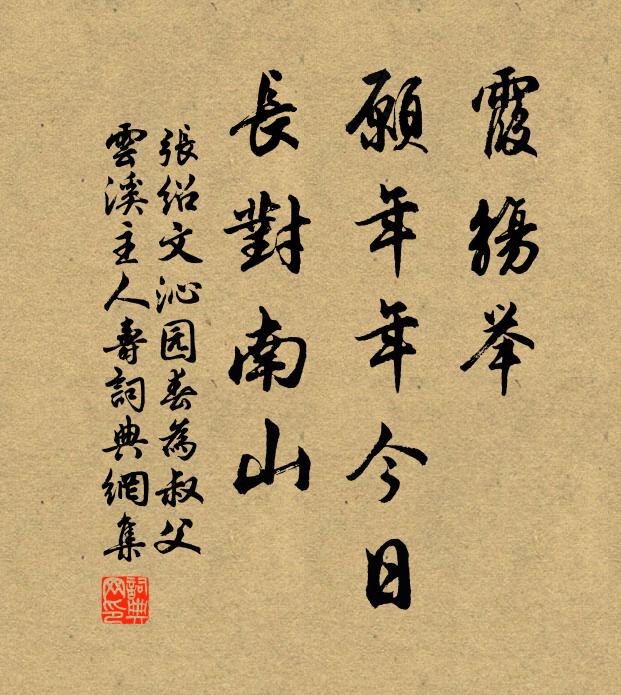 霞觴举
願年年今日
長對南山
張绍文沁园春為叔父
雲溪主人壽詞典網集
詞典网印